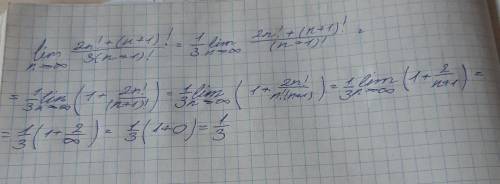 lim n→∞ (2n! + (n+1)!)/(3(n+1)!) = 1/3 lim n→∞ (2n! + (n+1)!)/((n+1)!) =
= 1/3 lim n→∞ (1 + 2n!/(n+1)!) = 1/3 lim n→∞ (1 + 2n!/(n!(n+1))) = 1/3 lim n→∞ (1 + 2/(n+1)) =
= 1/3 (1 + 2/∞) = 1/3 (1+0) = 1/3